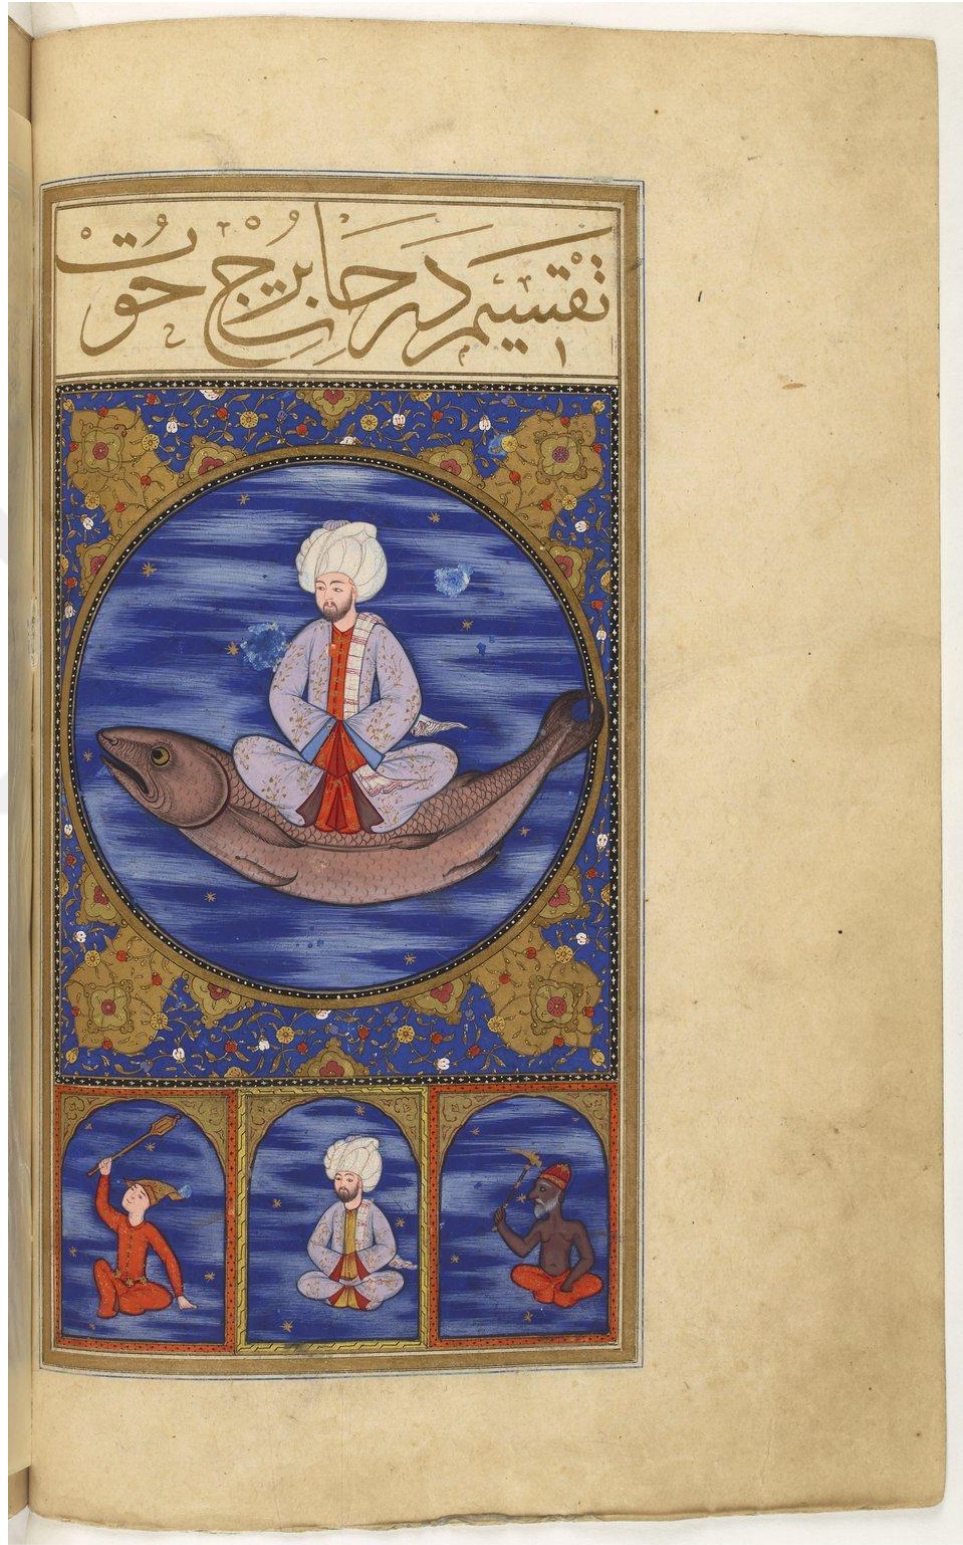 تقسيم درجات برج حوت